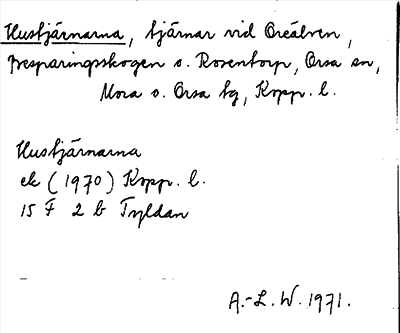 Hustjärnarna, tjärnar vid Oreälven,
Besparingsskogen o. Rosentorp, Orsa sn,
Mora o. Orsa tg, Kopp. l.
Hustjärnarna
ek (1970) Kopp. l.
15 F 2 b Tyldan
A.-L. W. 1971.